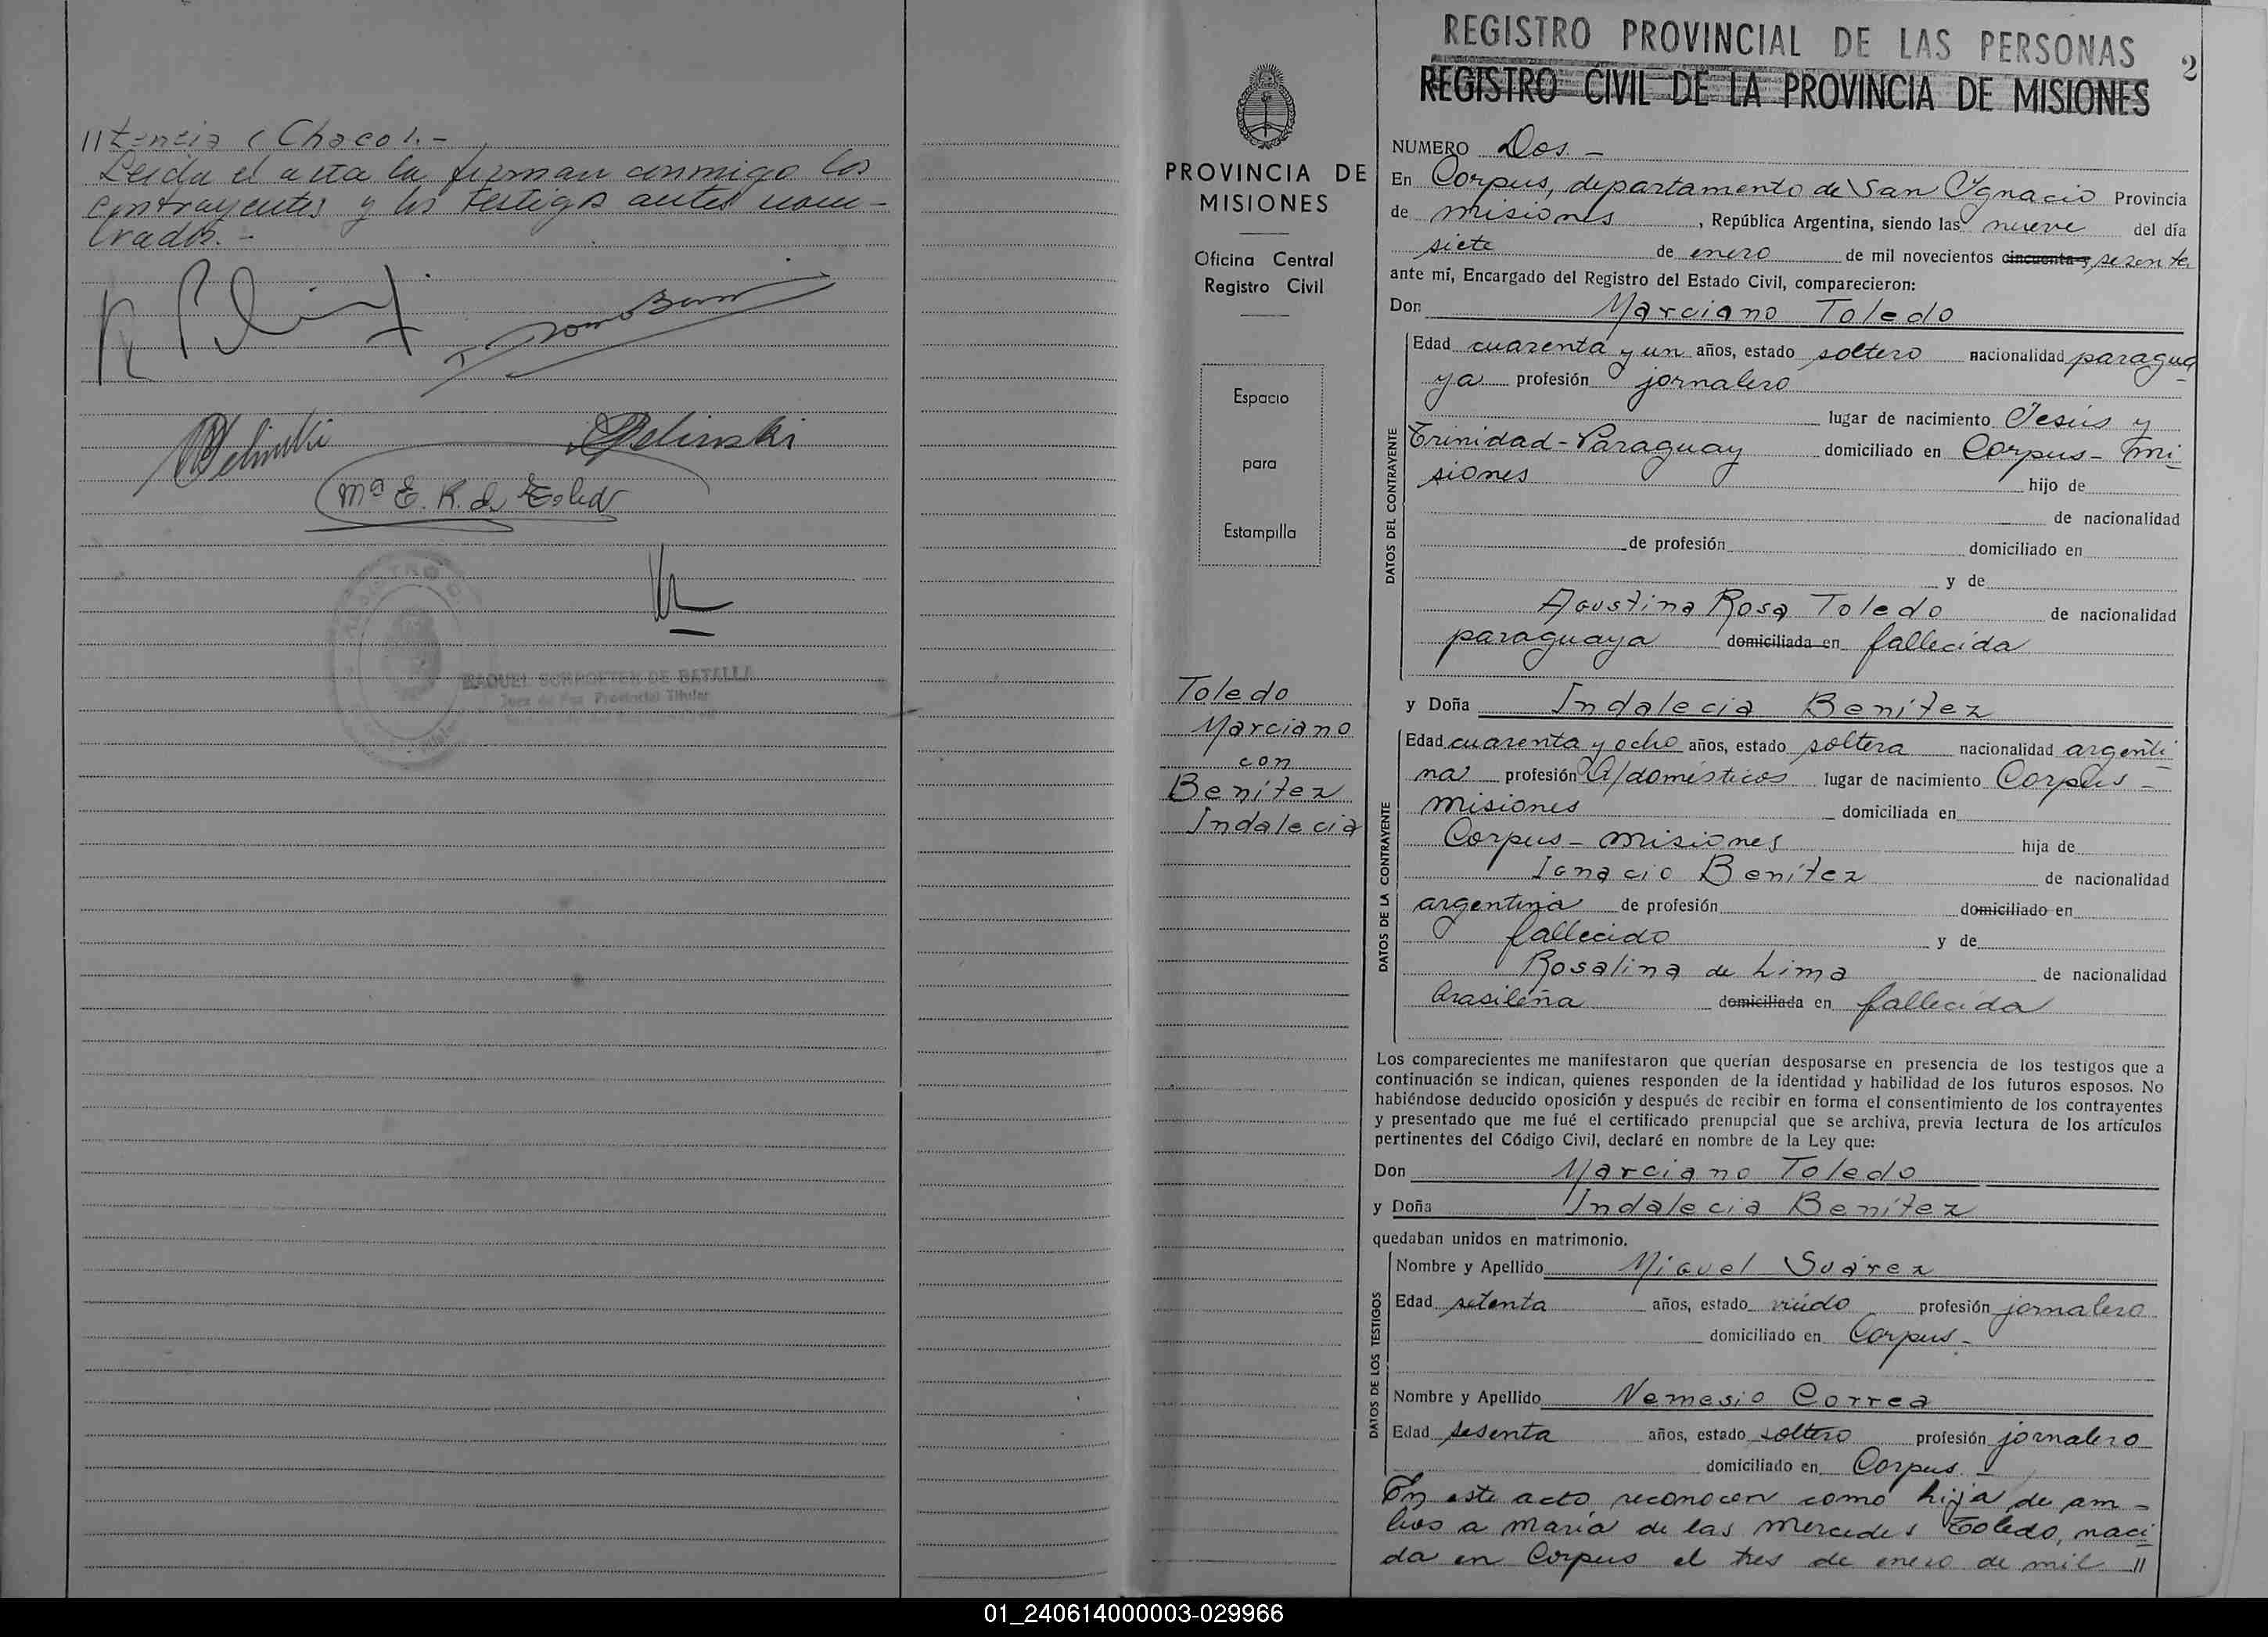 //tencia (Chaco).-
Leida el acta la firman conmigo los
contrayentes y los testigos antes nom-
brados.-
Belinski
Mª E. R. de Toledo
RAQUEL DE BATALLA
Juez de Paz Provincial Titular
PROVINCIA DE
MISIONES
Oficina Central
Registro Civil
Espacio
para
Estampilla
Toledo
Marciano
con
Benítez
Indalecia
REGISTRO PROVINCIAL DE LAS PERSONAS
REGISTRO CIVIL DE LA PROVINCIA DE MISIONES
2
NUMERO Dos.-
En Corpus, departamento de San Ignacio Provincia
de misiones, República Argentina, siendo las nueve del día
siete de enero de mil novecientos cincuenta y sesenta
ante mí, Encargado del Registro del Estado Civil, comparecieron:
Don Marciano Toledo
DATOS DEL CONTRAYENTE
Edad cuarenta y un años, estado soltero nacionalidad paragua
ya profesión jornalero
lugar de nacimiento Jesús y
Trinidad-Paraguay domiciliado en Corpus- mi-
siones hijo de
de nacionalidad
de profesión domiciliado en
y de
Agustina Rosa Toledo de nacionalidad
paraguaya domiciliada en fallecida
y Doña Indalecia Benítez
DATOS DE LA CONTRAYENTE
Edad cuarenta y ocho años, estado soltera nacionalidad argenti-
na profesión Q/domésticos lugar de nacimiento Corpus-
misiones domiciliada en
Corpus-misiones hija de
Ignacio Benítez de nacionalidad
argentina de profesión domiciliado en
fallecido y de
Rosalina de Lima de nacionalidad
brasileña domiciliada en fallecida
Los comparecientes me manifestaron que querían desposarse en presencia de los testigos que a
continuación se indican, quienes responden de la identidad y habilidad de los futuros esposos. No
habiéndose deducido oposición y después de recibir en forma el consentimiento de los contrayentes
y presentado que me fué el certificado prenupcial que se archiva, previa lectura de los artículos
pertinentes del Código Civil, declaré en nombre de la Ley que:
Don Marciano Toledo
y Doña Indalecia Benítez
quedaban unidos en matrimonio.
DATOS DE LOS TESTIGOS
Nombre y Apellido Miguel Suárez
Edad setenta años, estado viudo profesión jornalero
domiciliado en Corpus-
Nombre y Apellido Nemesio Correa
Edad sesenta años, estado soltero profesión jornalero
domiciliado en Corpus.-
En este acto reconocen como hija de am-
bos a maría de las mercedes Toledo, naci
da en Corpus el tres de enero de mil //
01_240614000003-029966